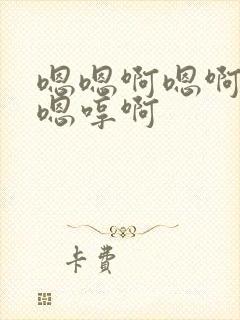 嗯嗯啊嗯啊
嗯哼啊
卡费